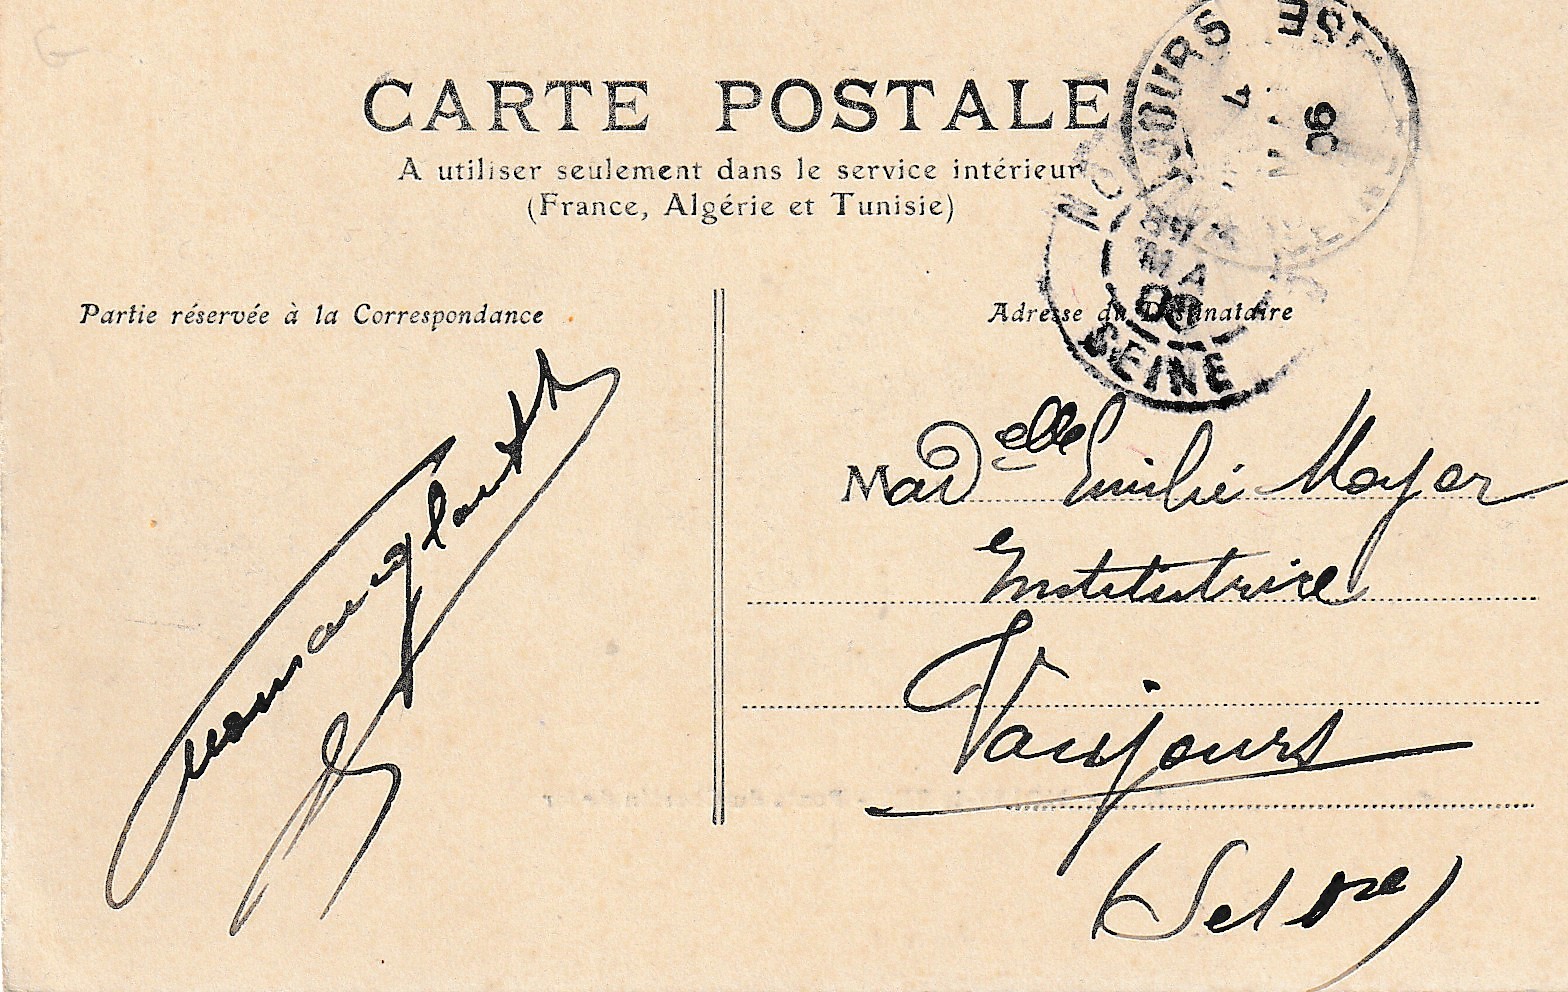 CARTE POSTALE
A utiliser seulement dans le service intérieur
(France, Algérie et Tunisie)
Partie réservée à la Correspondance
Adresse du Destinataire
SEINE
06
Madelle Emilie Mayer
Institutrice
Vaujours
(Set Ose)